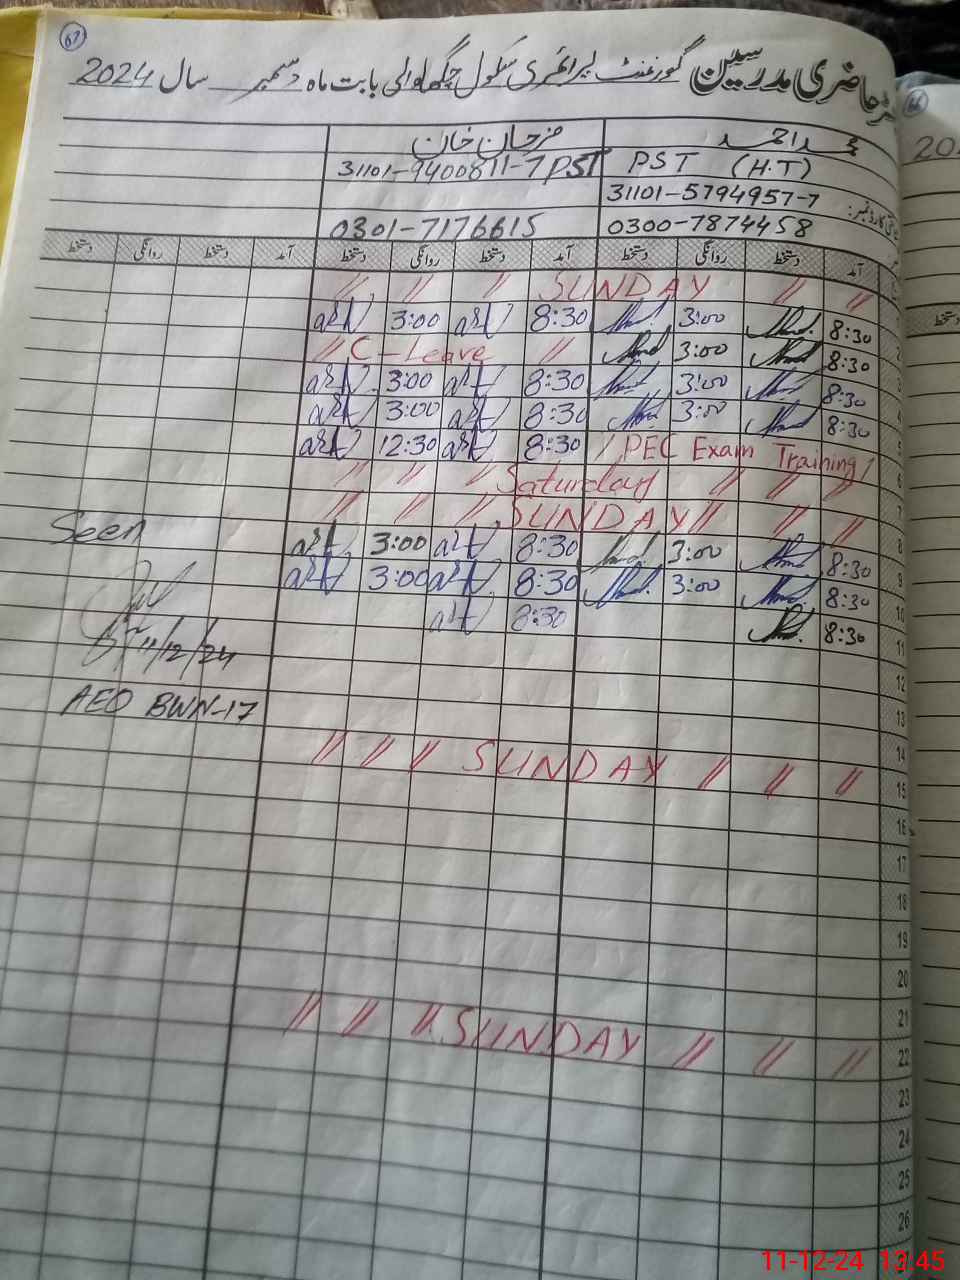 67
رجسٹر حاضری مدرسین گورنمنٹ پرائمری سکول بابت ماہ دسمبر سال 2024
محمد احمد مرجان خان
PST (H.T) 31101-9400811-7 PST
31101-5794957-7
0300-7874458 0301-7176615
آمد دستخط روانگی دستخط آمد دستخط روانگی دستخط آمد دستخط روانگی دستخط
" " " SUNDAY " "
8:30 3:00 8:30 3:00 2
8:30 3:00 " C-Leave " 3
8:30 3:00 8:30 3:00 4
8:30 3:00 8:30 3:00 5
/ PEC Exam Training / 8:30 12:30 6
" " " Saturday " " " 7
" " " SUNDAY " " " 8
Seen
8:30 3:00 8:30 3:00 9
8:30 3:00 8:30 3:00 10
8:30 8:30 11
11/12/24
12
AEO BWN-17
13
14
" " " SUNDAY " " " 15
16
17
18
19
20
21
" " " SUNDAY " " " 22
23
24
25
26
دستخط
11-12-24 13:45